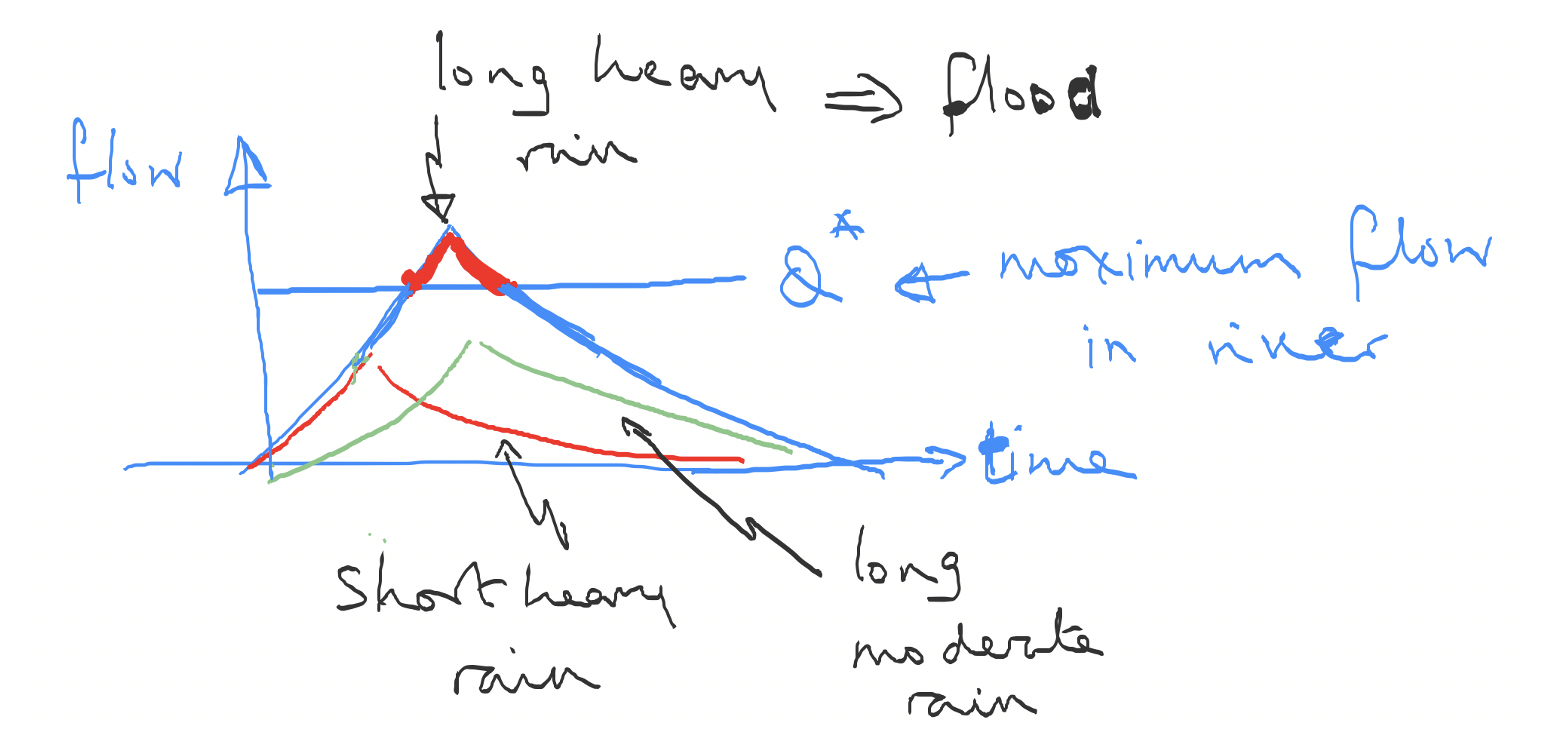 long heavy ⇒ flood
rain
flow
Q* ← maximum flow
in river
time
short heavy
rain
long
moderate
rain